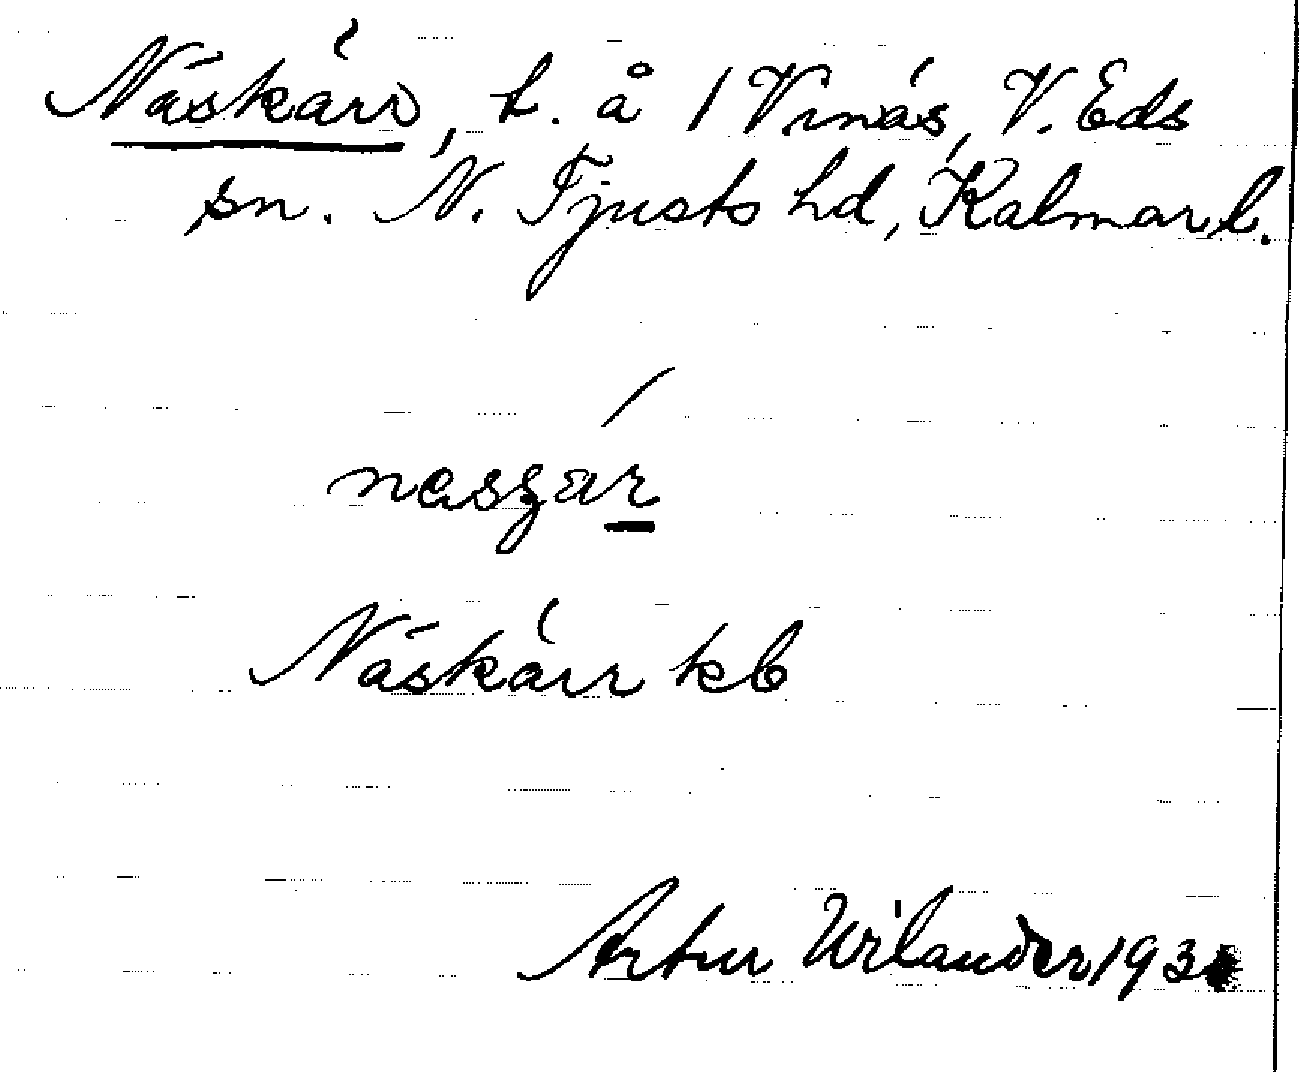 Näskärr, t. å 1 Vinäs, V. Eds
sn. N. Tjusts hd, Kalmar l.
Näskärr kb
Artur Wilander